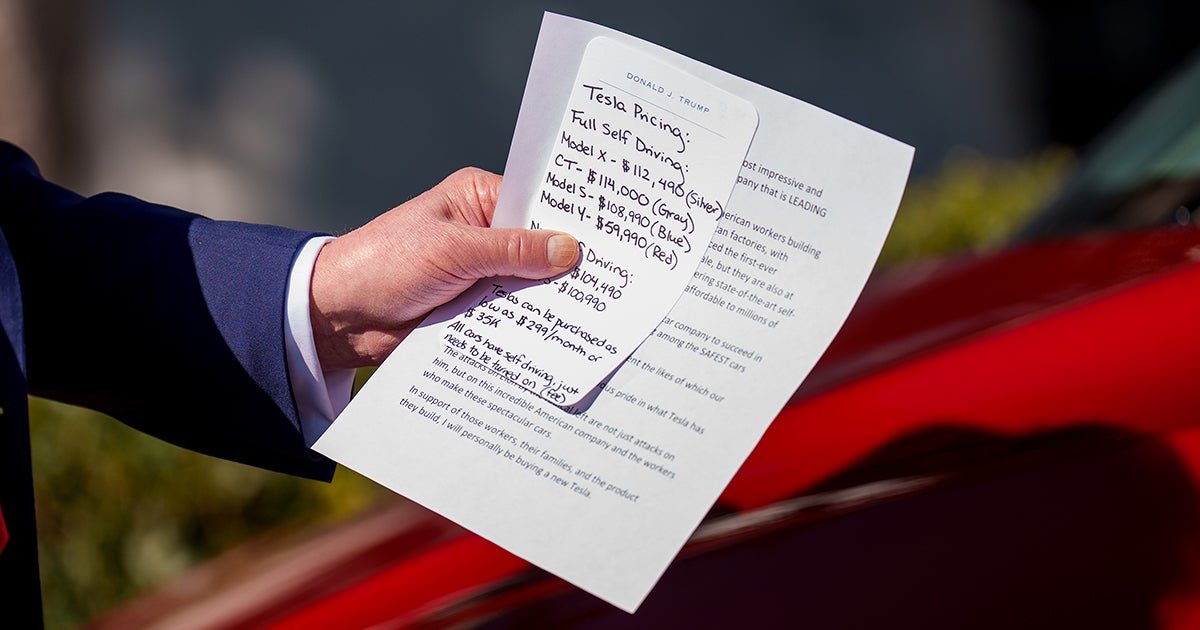 DONALD J. TRUMP
Tesla Pricing:
Full Self Driving:
Model X - $112,490 (Silver)
CT - $114,000 (Gray)
Model S - $108,990 (Blue)
Model Y - $59,990 (Red)
Driving:
$104,490
- $100,990
Teslas can be purchased as
low as $299/month or
$35K
All cars have self driving, just
needs to be turned on (fee)
impressive and
that is LEADING
workers building
factories, with
the first-ever
but they are also at
state-of-the-art self-
affordable to millions of
company to succeed in
among the SAFEST cars
the likes of which our
pride in what Tesla has
The attacks left are not just attacks on
him, but on this incredible American company and the workers
who make these spectacular cars.
In support of those workers, their families, and the product
they build, I will personally be buying a new Tesla.